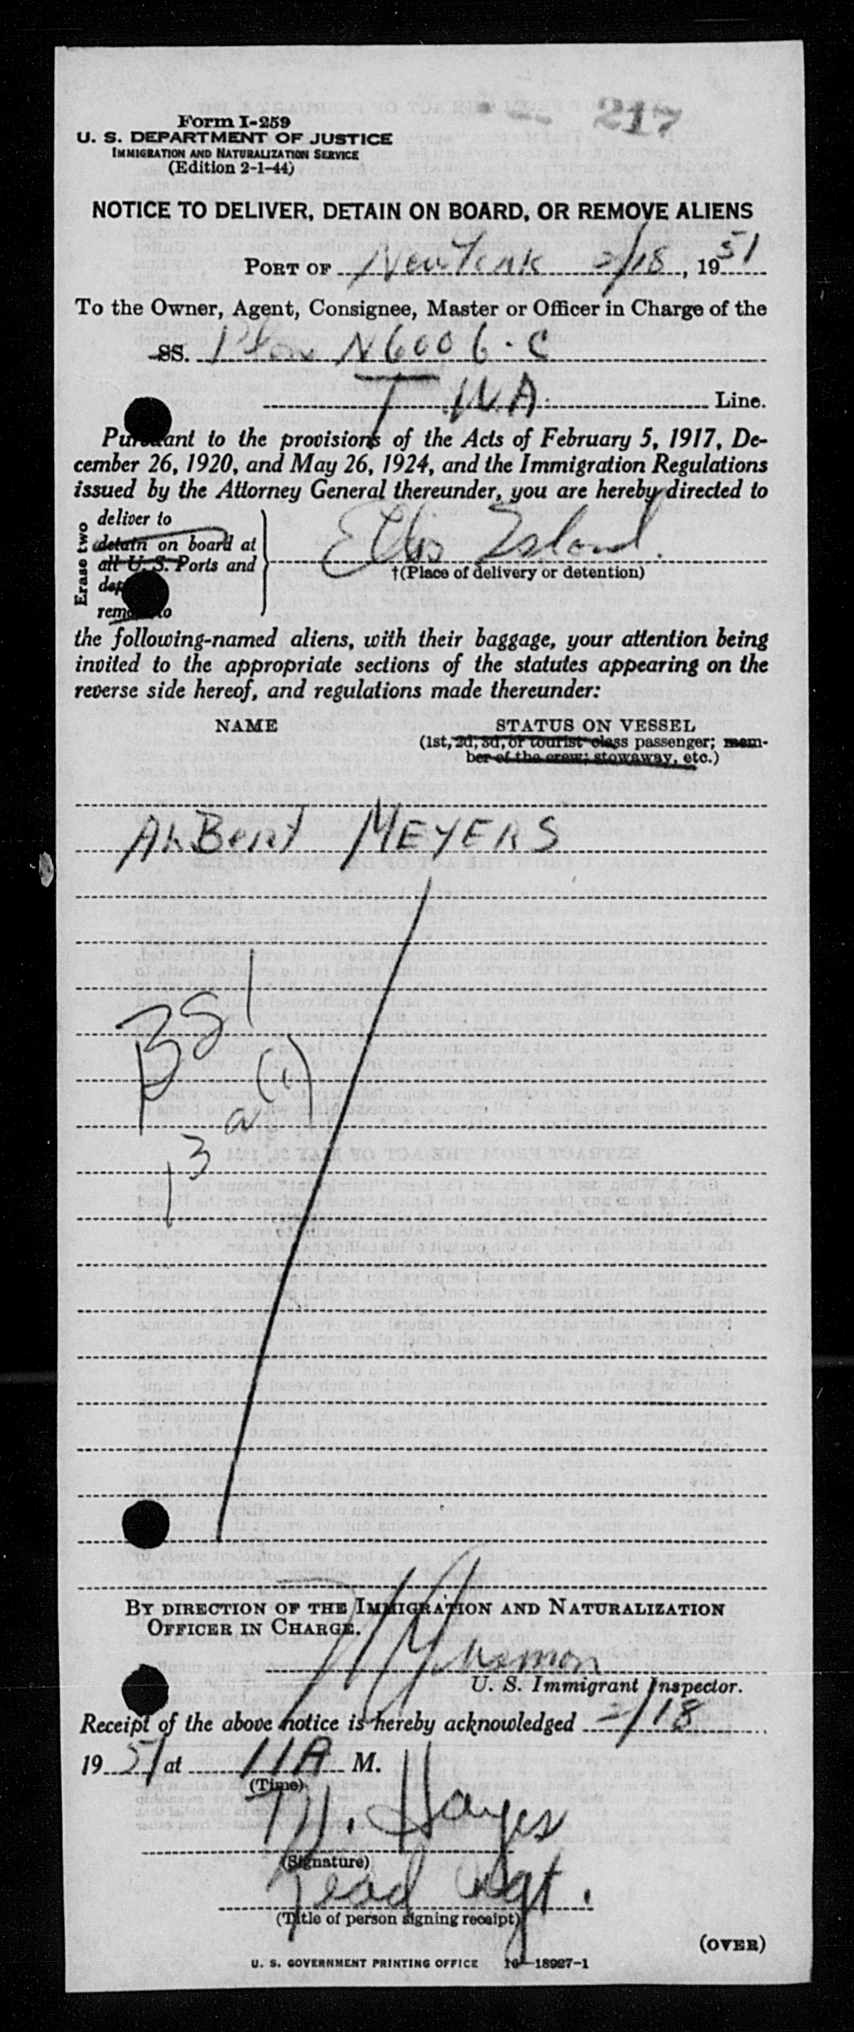 217
Form I-259
U. S. DEPARTMENT OF JUSTICE
IMMIGRATION AND NATURALIZATION SERVICE
(Edition 2-1-44)
NOTICE TO DELIVER, DETAIN ON BOARD, OR REMOVE ALIENS
PORT OF New York 2/18, 1951
To the Owner, Agent, Consignee, Master or Officer in Charge of the
SS. Plane N6006-C
TWA Line.
Pursuant to the provisions of the Acts of February 5, 1917, De-
cember 26, 1920, and May 26, 1924, and the Immigration Regulations
issued by the Attorney General thereunder, you are hereby directed to
Erase two
deliver to
detain on board at
all U. S. Ports and
remove to
Ellis Island.
†(Place of delivery or detention)
the following-named aliens, with their baggage, your attention being
invited to the appropriate sections of the statutes appearing on the
reverse side hereof, and regulations made thereunder:
NAME STATUS ON VESSEL
(1st, 2d, 3d, or tourist class passenger; mem-
ber of the crew; stowaway, etc.)
ALBERT MEYERS
BSI
13 a (1)
BY DIRECTION OF THE IMMIGRATION AND NATURALIZATION
OFFICER IN CHARGE.
U. S. Immigrant Inspector.
Receipt of the above notice is hereby acknowledged 2/18
1951 at 11A M.
(Time)
M. Hayes
(Signature)
Read Agt.
(Title of person signing receipt)
(OVER)
U. S. GOVERNMENT PRINTING OFFICE 16—18927-1